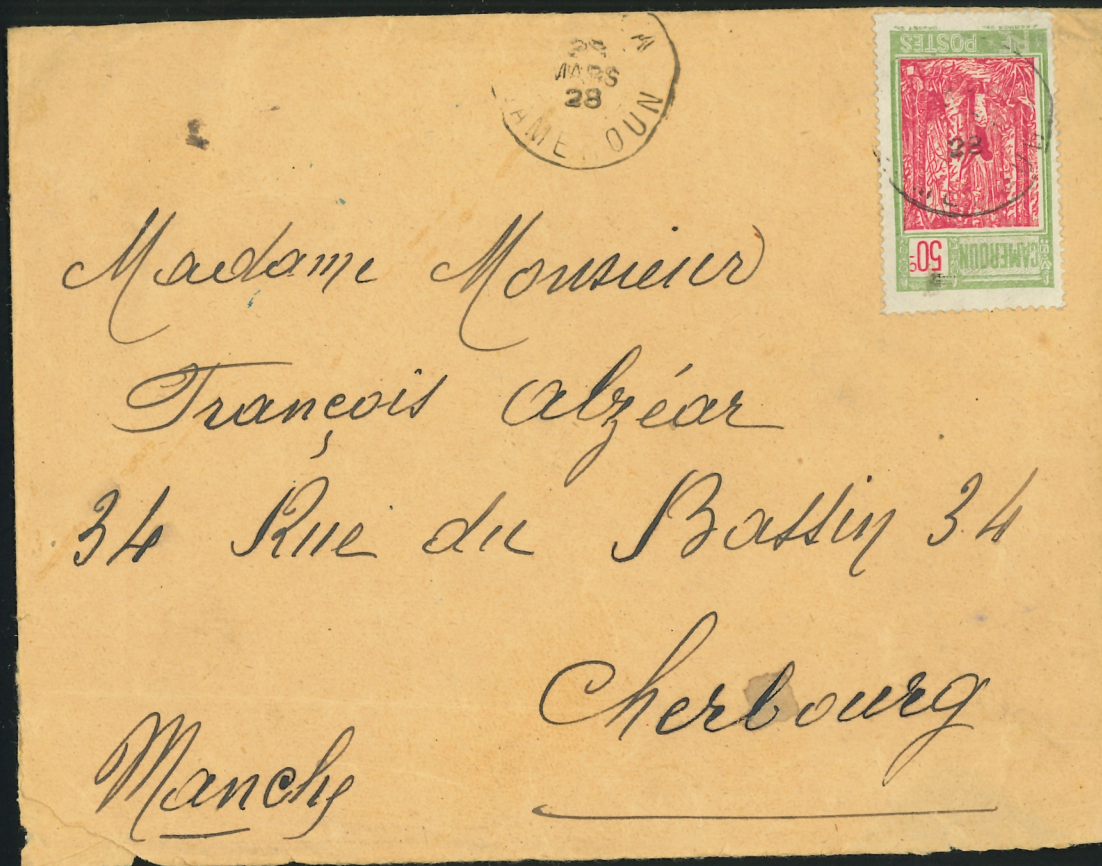 MARS
28
CAMEROUN
POSTES
28
50c
CAMEROUN
Madame Monsieur
François Alzéar
34 Rue du Bassin 34
Cherbourg
Manche